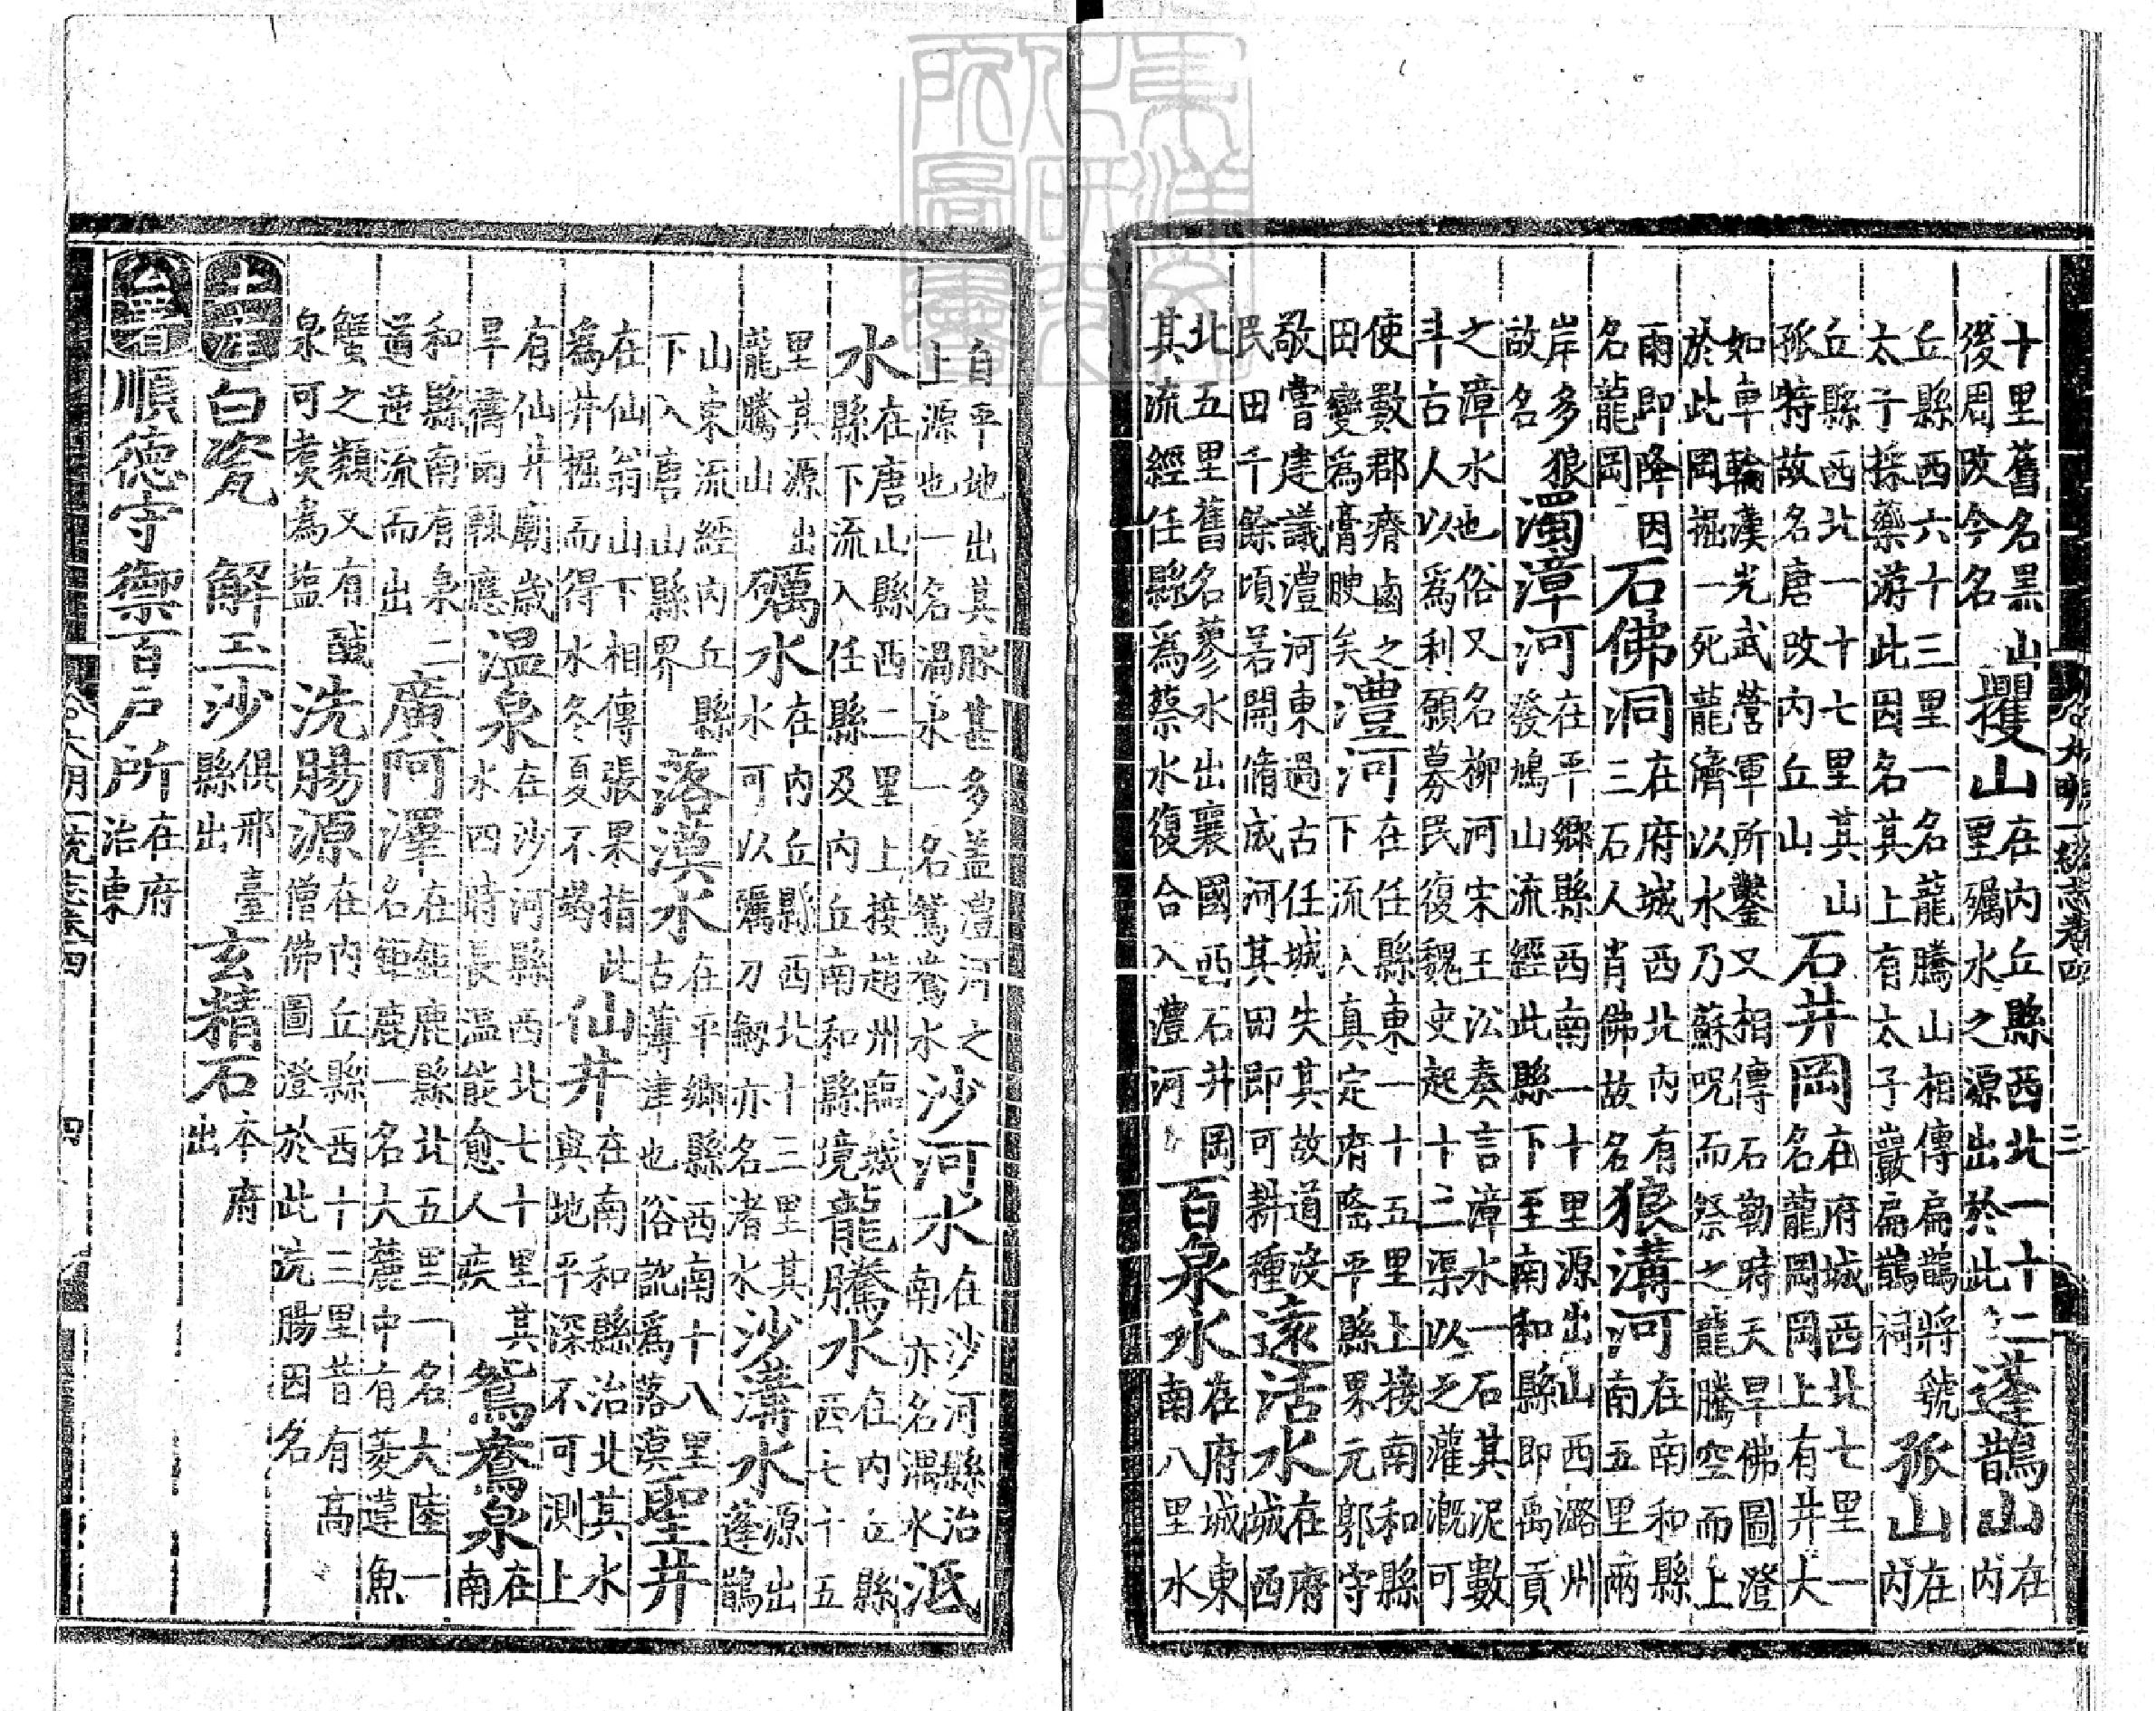 大明一統志卷四 三
十里舊名黑山
後周改今名
玃山
在内丘縣西北一十二
里礪水之源出於此
蓬鵲山
在
内
丘縣西六十三里一名龍騰山相傳扁鵲將號
太子採藥游此因名其上有太子巖扁鵲祠
孤山
在
内
丘縣西北一十七里其山
孤特故名唐改内丘山
石井岡
在府城西北七里一
名龍岡岡上有井大
如車輪漢光武營軍所鑿又相傳石勒時天旱佛圖澄
於此岡掘一死龍濟以水乃蘇呪而祭之龍騰空而上
雨即降因
名龍岡
石佛洞
在府城西北内有
三石人肖佛故名
狼溝河
在南和縣
南五里兩
岸多狼
故名
濁漳河
在平鄉縣西南一十里源出山西潞州
發鳩山流經此縣下至南和縣即禹貢
之漳水也俗又名柳河宋王沿奏言漳水一石其泥數
斗古人以爲利願募民復魏史起十二渠以之灌漑可
使數郡瘠鹵之
田變爲膏腴矣
澧河
在任縣東一十五里上接南和縣
下流入真定府隆平縣界元郭守
敬嘗建議澧河東過古任城失其故道没
民田千餘頃若開脩成河其田即可耕種
逺活水
在府
城西
北五里舊名蓼水出襄國西石井岡
其流經任縣爲蔡水復合入澧河
百泉水
在府城東
南八里水
自平地出其脉甚多蓋澧河之
上源也一名渦水一名鴛鴦水
沙河水
在沙河縣治
南亦名湡水
泜
水
在唐山縣西二里上接趙州臨城
縣下流入任縣及内丘南和縣境
龍騰水
在内丘縣
西七十五
里其源出
龍騰山
礪水
在内丘縣西北十三里其
水可以礪刀劒亦名渚水
沙溝水
源出
蓬鵲
山東流經内丘縣
下入唐山縣界
落漠水
在平鄉縣西南十八里
古薄津也俗訛爲落漠
聖井
在仙翁山下相傳張果指此
爲井掘而得水冬夏不竭
仙井
在南和縣治北其水
與地平深不可測上
有仙井廟歲
旱禱雨輒應
温泉
在沙河縣西北七十里其
水四時長温能愈人疾
鴛鴦泉
在
南
和縣南有泉二
道逆流而出
廣阿澤
在鉅鹿縣北五里一名大陸一
名鉅鹿一名大麓中有菱蓮魚
蟹之類又有鹹
泉可煑為鹽
洗腸源
在内丘縣西十三里昔有高
僧佛圖澄於此洗腸因名
土産
白瓷
解玉沙
俱邢臺
縣出
玄精石
本府
出
公署
順德守禦百户所
在府
治東
大明一統志卷四 四